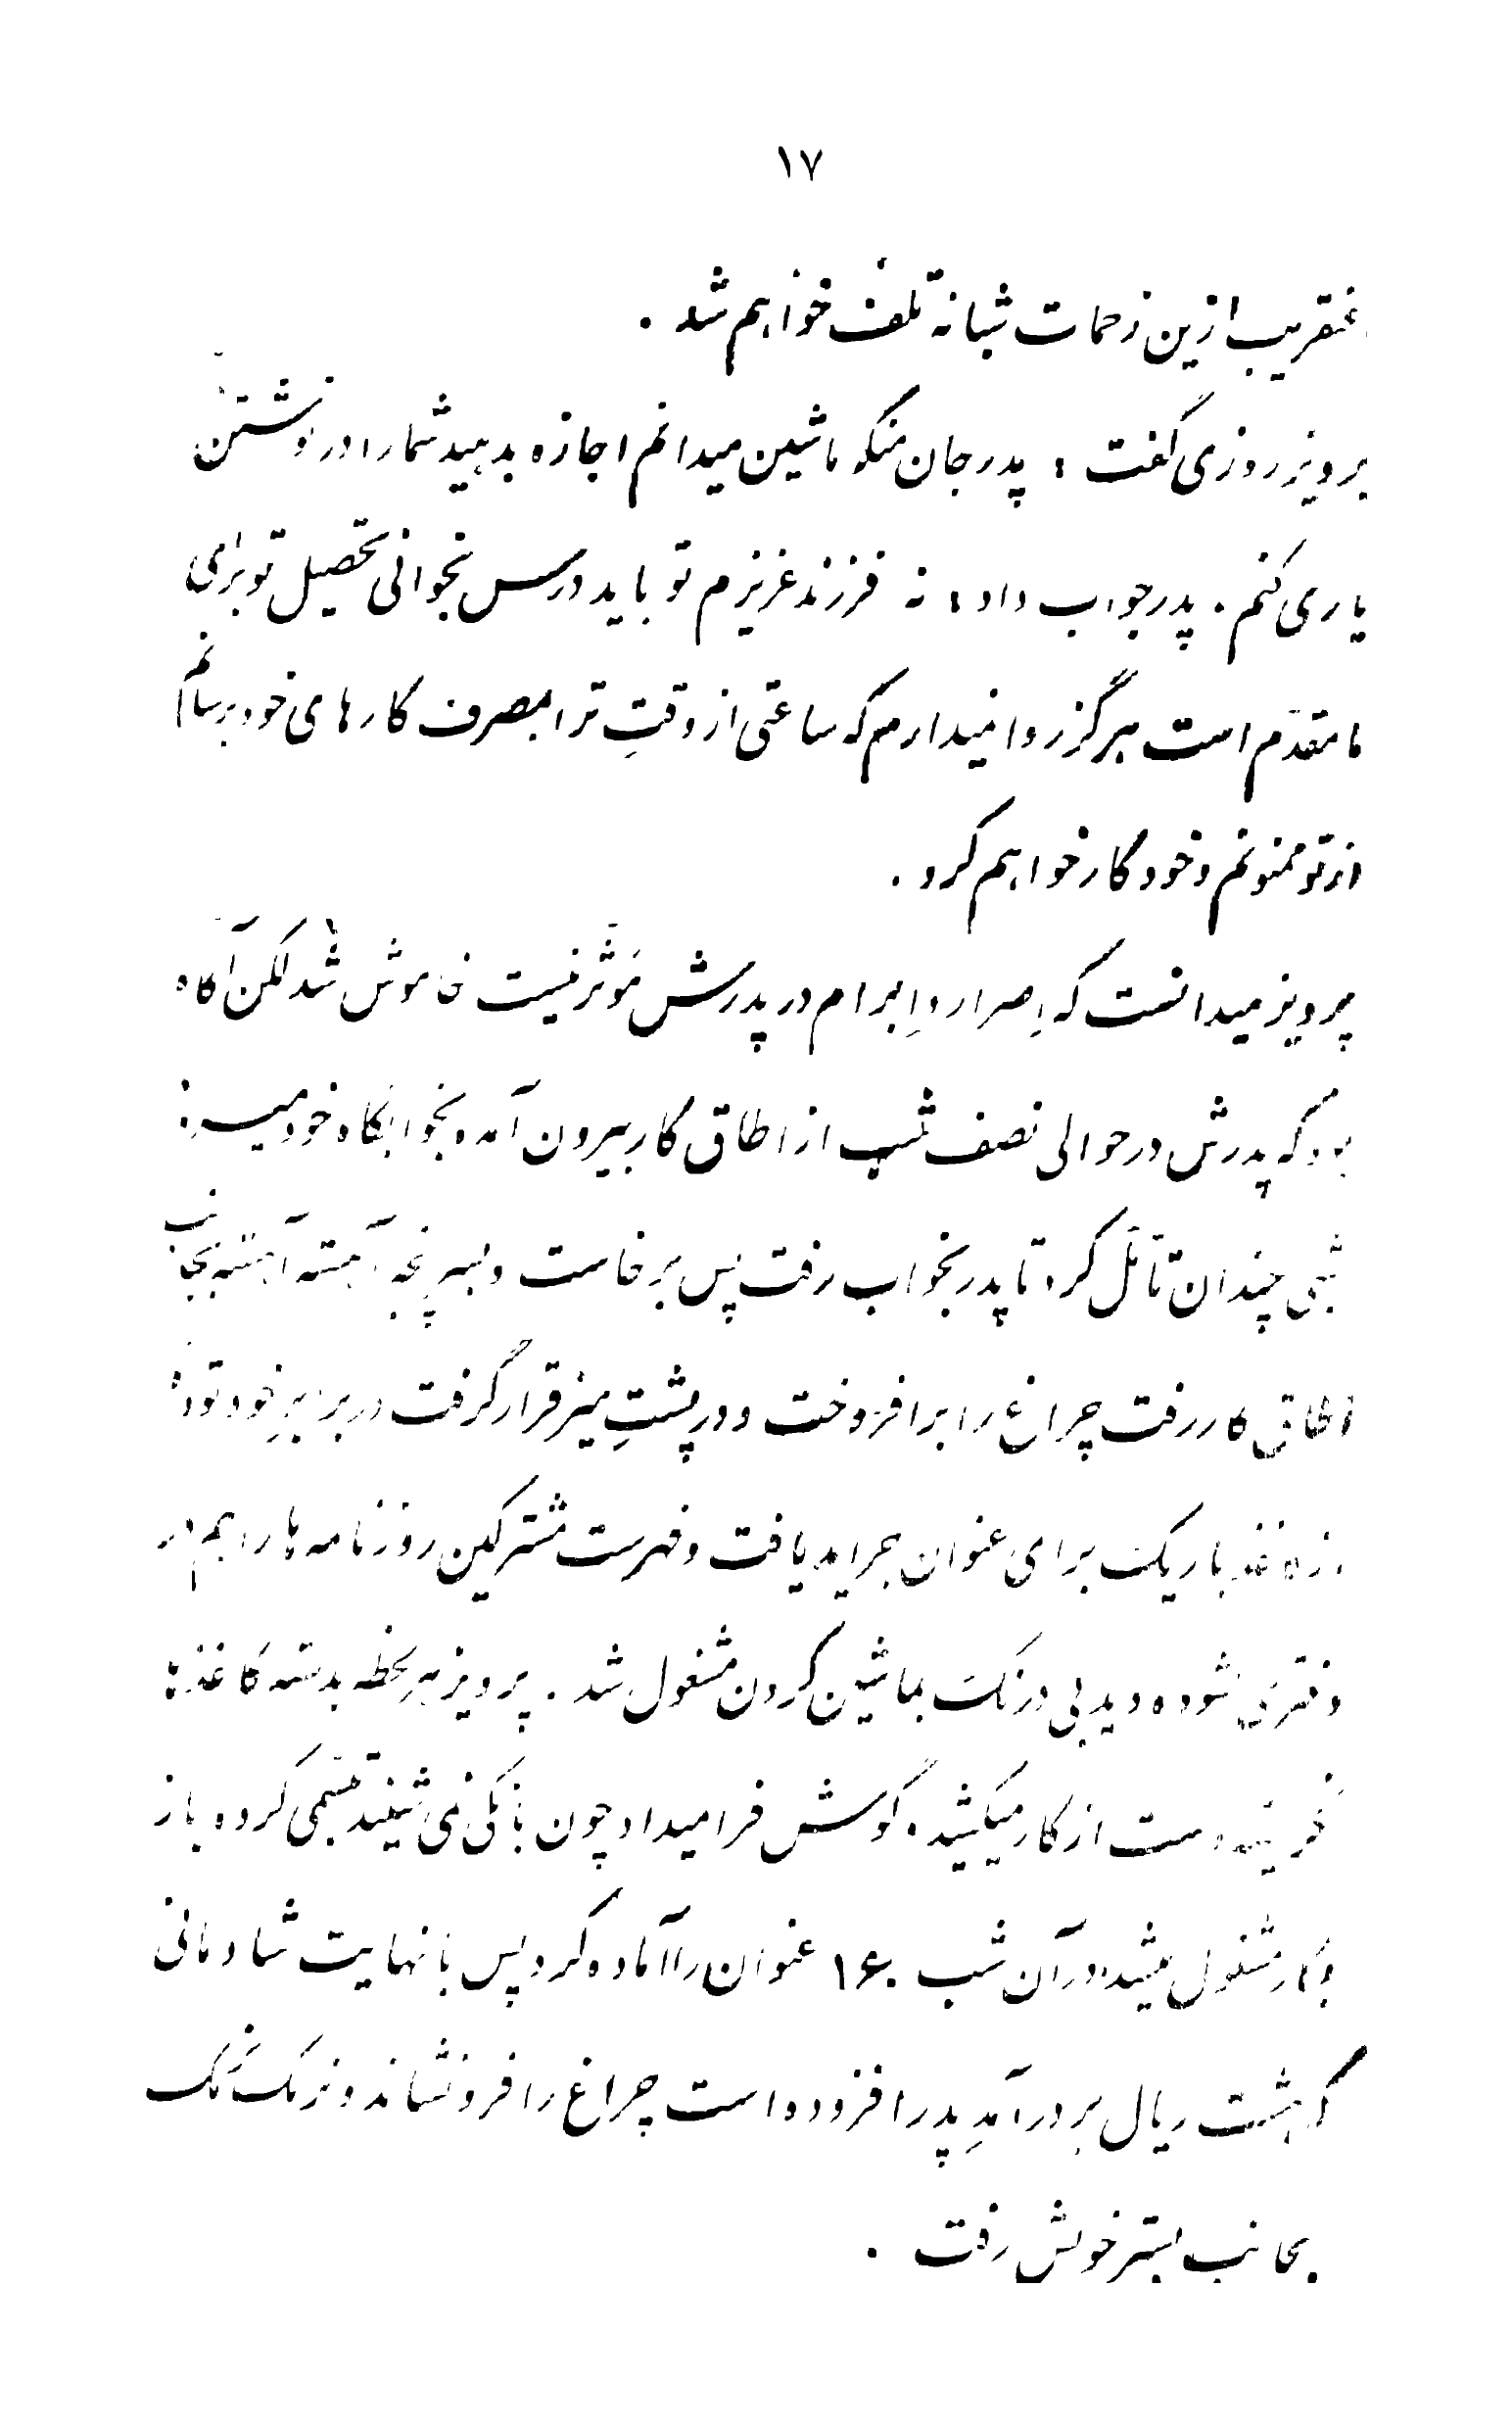 ۱۷
عنقریب ازین زحمات شبانه تلف خواهم شد .
پرویز روزی گفت : پدر جان منکه ماشین میدانم اجازه بدهید شما را در نوشتن
یاری کنم . پدر جواب داد : نه فرزند عزیزم تو باید درس بخوانی تحصیل تو برای
ما مقدّم است هرگز روا نمیدارم که ساعتی از وقتِ ترا بمصرف کارهای خود برسانم
از تو ممنونم و خود کار خواهم کرد .
پرویز میدانست که اِصرار و اِبرام در پدرش مؤثّر نیست خاموش شد لکن آگاه
بود که پدرش در حوالی نصف شب از اطاق کار بیرون آمده بخوابگاه خود میرود
شبی چندان تأمّل کرد تا پدر بخواب رفت پس برخاست و بسر پنجه آهسته آهسته بجانب
اطاق کار رفت چراغ را برافروخت و در پشتِ میز قرار گرفت در برابرِ خود توده‌ٔ
از کاغذ باریک برای عنوان جراید یافت و فهرست مشترکین روزنامه ها را هم در
دفتری گشوده دید بی درنگ بماشین کردن مشغول شد . پرویز هر لحظه بدسته کاغذ ها
نگریسته دست از کار میکشید . گوش فرا میداد چون بانگی نمی شنید تبسّمی کرده باز
بکار مشغول میشد در آن شب ۱۶۰ عنوان را آماده کرد پس با نهایت شادمانی
که هشت ریال بر درآمدِ پدر افزوده است چراغ را فرو نشاند و نرمک نرمک
بجانب بستر خویش رفت .